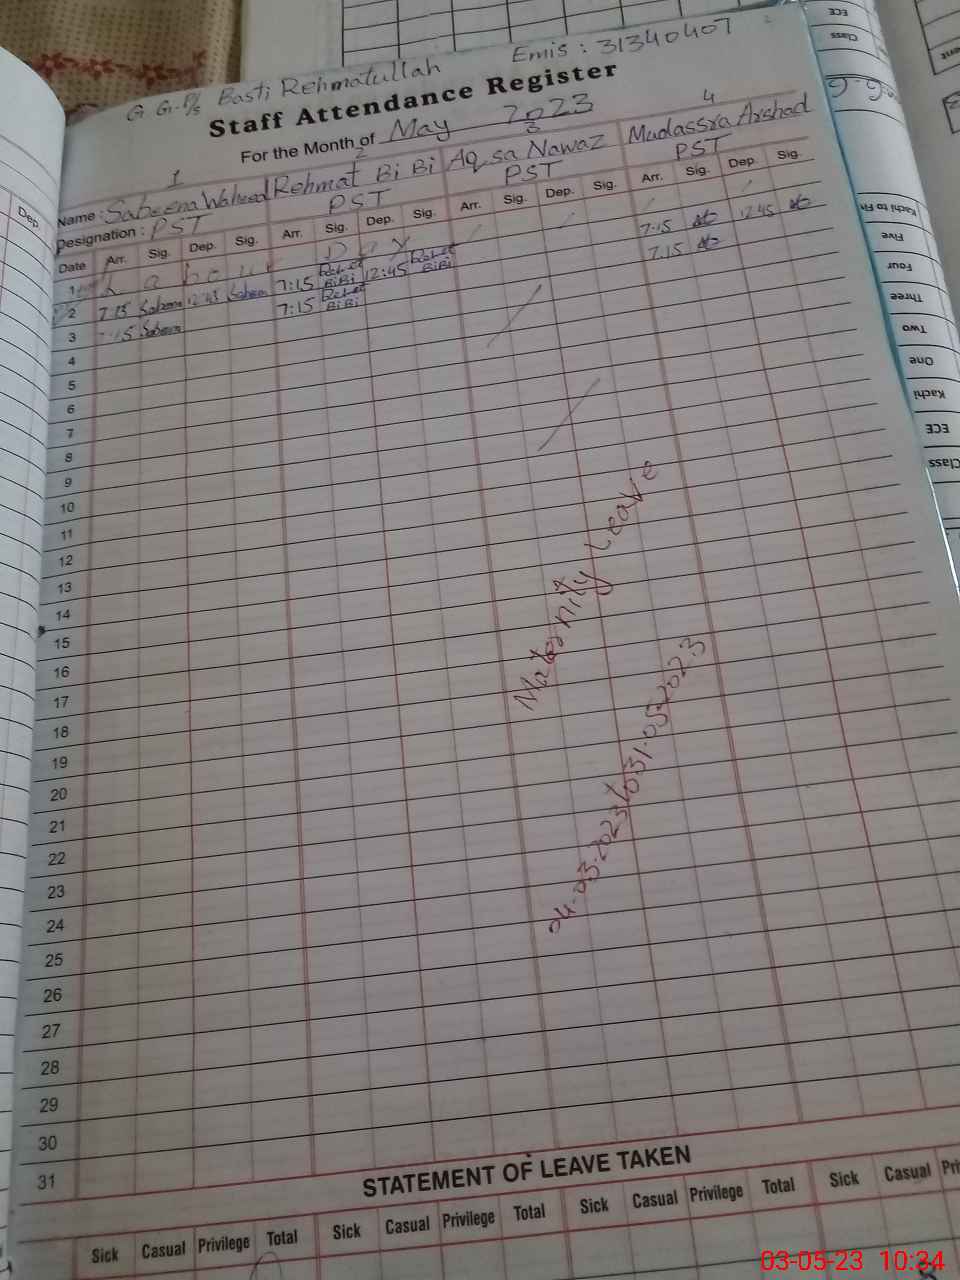 G G.P/S Basti Rehmatullah Emis : 31340407
Staff Attendance Register
For the Month of May 2023
1 2 3 4
Name : Sabeena Waheed Rehmat Bi Bi Aqsa Nawaz Mudassra Arshad
Designation : PST PST PST PST
Date Arr. Sig. Dep. Sig. Arr. Sig. Dep. Sig. Arr. Sig. Dep. Sig. Arr. Sig. Dep. Sig.
1 Labour Day
2 7:15 Sabeena 12:45 Sabeena 7:15 Rehmat BiBi 12:45 Rehmat BiBi 7:15 12:45
3 7:15 Sabeena 7:15 Rehmat BiBi 7.15
4
5
6
7
8
9
10
11
12
13
14
15
16
17
18
19
20
21
22
23
24
25
26
27
28
29
30
31
Maternity Leave
04-03-2023 to 31-05-2023
STATEMENT OF LEAVE TAKEN
Sick Casual Privilege Total Sick Casual Privilege Total Sick Casual Privilege Total Sick Casual Pri
Dep
ECE
Class
Kachi to Five
Five
Four
Three
Two
One
Kachi
ECE
Class
03-05-23 10:34